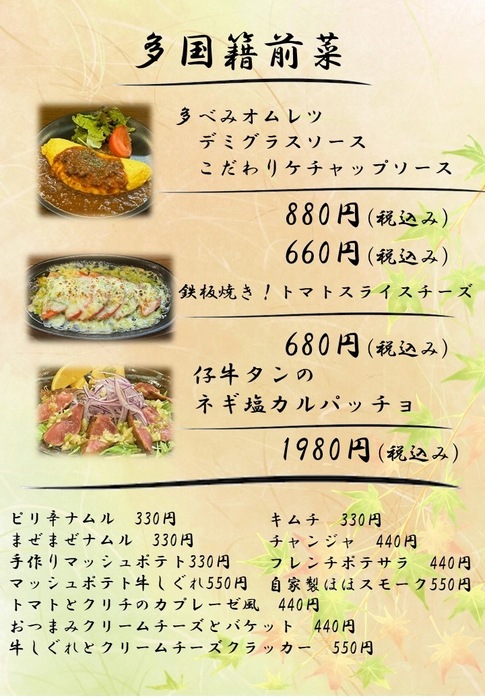 多国籍前菜
多べみオムレツ
デミグラスソース
こだわりケチャップソース
880円(税込み)
660円(税込み)
鉄板焼き!トマトスライスチーズ
680円(税込み)
仔牛タンの
ネギ塩カルパッチョ
1980円(税込み)
ピリ辛ナムル 330円
まぜまぜナムル 330円
手作りマッシュポテト330円
マッシュポテト牛しぐれ550円
トマトとクリチのカプレーゼ風 440円
おつまみクリームチーズとバケット 440円
牛しぐれとクリームチーズクラッカー 550円
キムチ 330円
チャンジャ 440円
フレンチポテサラ 440円
自家製ほほスモーク550円